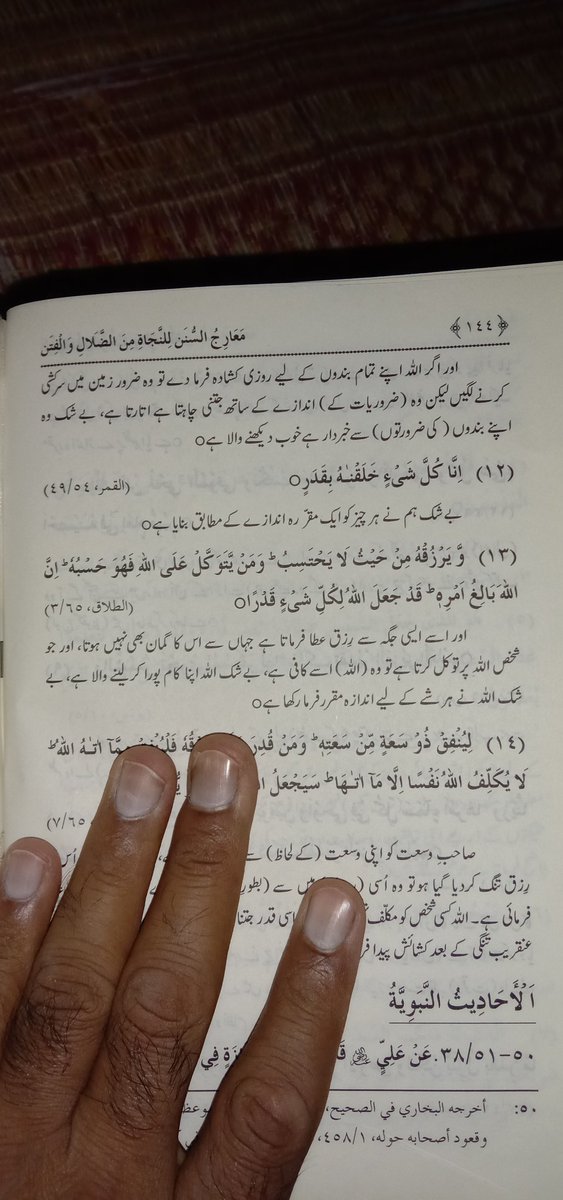 ﴿١٤٤﴾ مَعَارِجُ السُّنَن لِلنَّجَاةِ مِنَ الضَّلَالِ وَالْفِتَن
اور اگر اللہ اپنے تمام بندوں کے لیے روزی کشادہ فرما دے تو وہ ضرور زمین میں سرکشی
کرنے لگیں لیکن وہ (ضروریات کے) اندازے کے ساتھ جتنی چاہتا ہے اتارتا ہے، بے شک وہ
اپنے بندوں (کی ضرورتوں) سے خبردار ہے خوب دیکھنے والا ہےo
(١٢) اِنَّا کُلَّ شَیْءٍ خَلَقْنٰہُ بِقَدَرٍo (القمر، ٥٤/٤٩)
بے شک ہم نے ہر چیز کو ایک مقرّرہ اندازے کے مطابق بنایا ہےo
(١٣) وَّ یَرْزُقْهُ مِنْ حَیْثُ لَا یَحْتَسِبُ ؕ وَمَنْ یَّتَوَکَّلْ عَلَی اللهِ فَهُوَ حَسْبُهٗ ؕ اِنَّ
اللهَ بَالِغُ اَمْرِهٖ ؕ قَدْ جَعَلَ اللهُ لِکُلِّ شَیْءٍ قَدْرًاo (الطلاق، ٦٥/٣)
اور اسے ایسی جگہ سے رِزق عطا فرماتا ہے جہاں سے اس کا گمان بھی نہیں ہوتا، اور جو
شخص اللہ پر توکل کرتا ہے تو وہ (اللہ) اسے کافی ہے، بے شک اللہ اپنا کام پورا کر لینے والا ہے، بے
شک اللہ نے ہر شے کے لیے اندازہ مقرر فرما رکھا ہےo
(١٤) لِیُنْفِقْ ذُوْ سَعَةٍ مِّنْ سَعَتِهٖ ؕ وَمَنْ قُدِرَ فَلْیُنْفِقْ مِمَّآ اٰتٰهُ اللهُ ؕ
لَا یُکَلِّفُ اللهُ نَفْسًا اِلَّا مَآ اٰتٰهَا ؕ سَیَجْعَلُ
٧/٦٥)
صاحبِ وسعت کو اپنی وسعت (کے لحاظ) سے
رِزق تنگ کر دیا گیا ہو تو وہ اُسی میں سے (بطور
فرمائی ہے۔ اللہ کسی شخص کو مکلّف اسی قدر جتنا
عنقریب تنگی کے بعد کشائش پیدا
اَلْأَحَادِيْثُ النَّبَوِيَّةُ
٥٠-٣٨/٥١. عَنْ عَلِيٍّ فِي
٥٠: أخرجه البخاري في الصحيح،
وقعود أصحابه حوله، ٤٥٨/١،